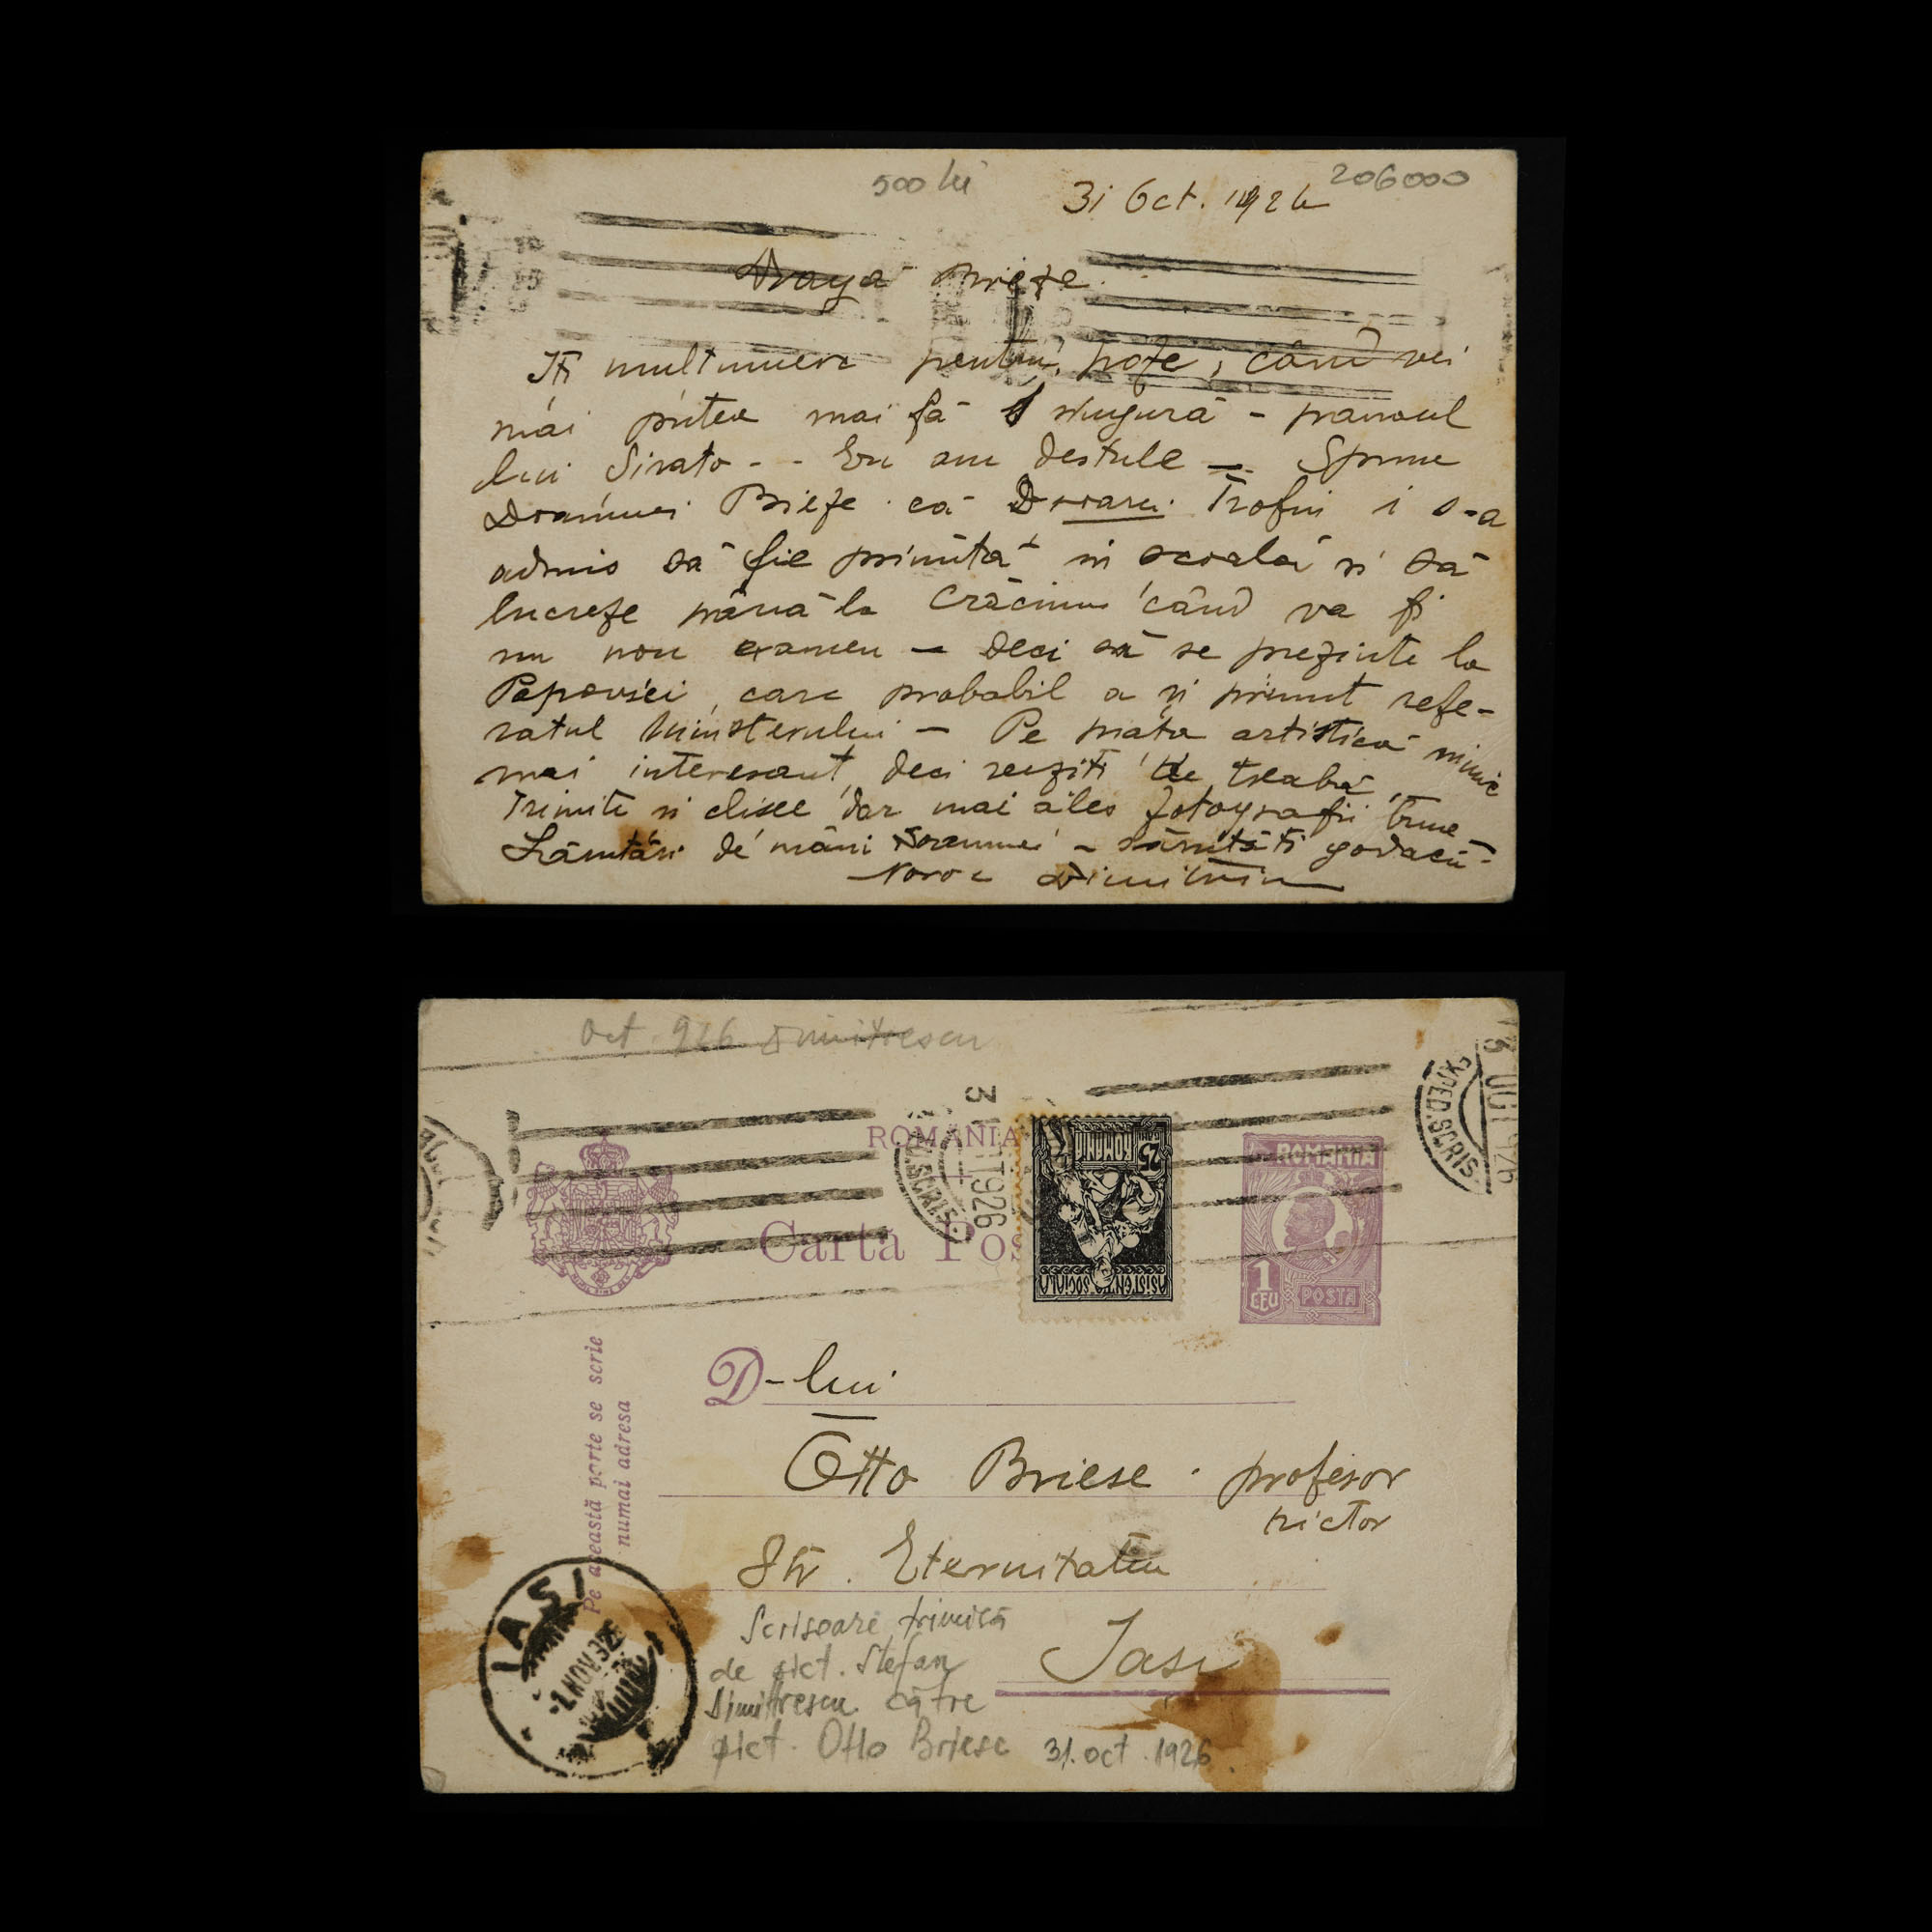 500 lei
206000
31 Oct. 1926
Dragă Brieze
Iți multumesc pentru poze, când vei
mai putea mai fă singură - panoul
lui Sirato - - Eu am destule — Spune
Doamnei Brieze că Trofin i s-a
admis să fie primită in scoală si să
lucreze până la Crăciun când va fi
un nou examen — deci să se prezinte la
Popovici, care probabil a si primit refe-
ratul Ministerului — Pe piata artistică nimic
mai interesant, deci de treabă,
Trimite si clisee dar mai ales fotografii bune —
Sărutări de mâini Doamnei - sănătăti
Noroc Dimitriu
Oct. 926 Dimitrescu
ROMANIA
Carta Pos
3 OCT 926
EXPED. SCRIS.
ROMANIA
25
ASISTENTA SOCIALA
ROMANIA
1 LEU
POSTA
Pe această parte se scrie
numai adresa
D-lui
Otto Briese · profesor
pictor
Str. Eternitatii
Iasi
Scrisoare trimisă
de pict. Stefan
Dimitrescu către
pict. Otto Briese 31.oct.1926
IASI